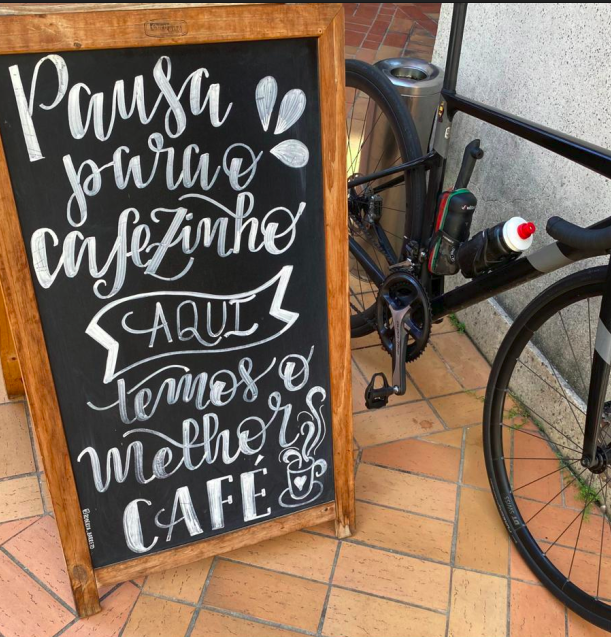 Pausa
para o
cafezinho
AQUI
temos o
melhor
CAFÉ